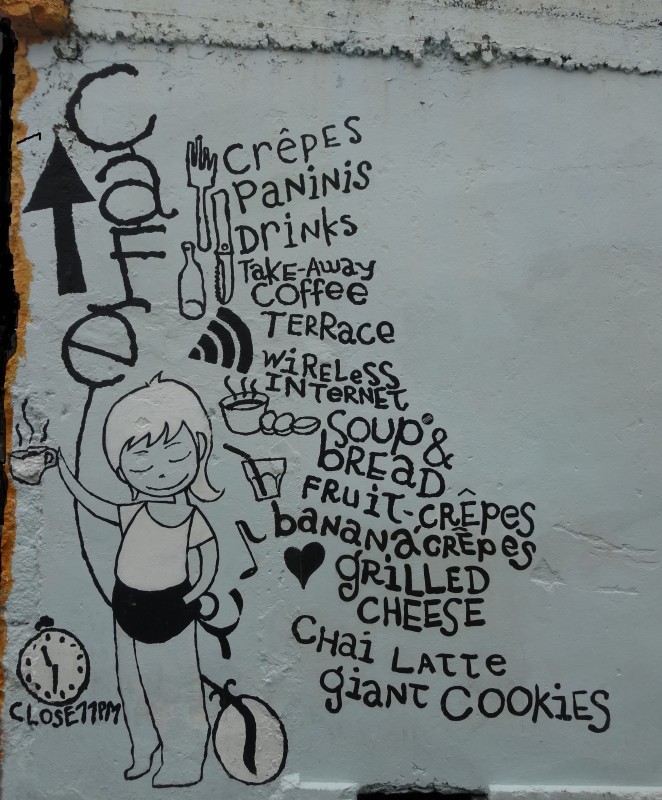 Cafe
CrêPES
PANiNiS
DriNks
TAKE-AWAY
COffee
TERRace
WiRELeSS
INTerNET
SOUP &
bREAD
FRUiT-CRÊPES
bANANA CRÊPES
gRiLLED
CHEESE
CHai LATTe
giaNT COOKiES
CLOSE 11PM